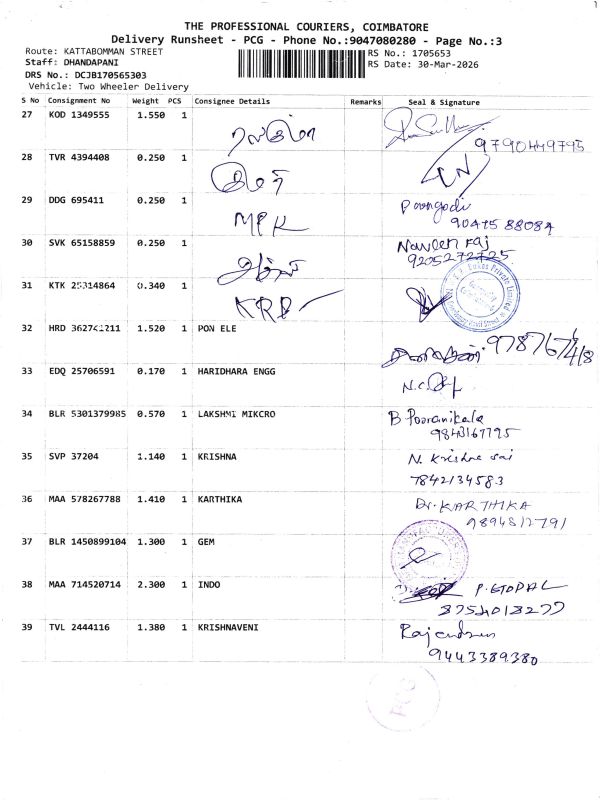 THE PROFESSIONAL COURIERS, COIMBATORE
Delivery Runsheet - PCG - Phone No.:9047080280 - Page No.:3
Route: KATTABOMMAN STREET
RS No.: 1705653
Staff: DHANDAPANI
RS Date: 30-Mar-2026
DRS No.: DCJB170565303
Vehicle: Two Wheeler Delivery
S No Consignment No Weight PCS Consignee Details Remarks Seal & Signature
27 KOD 1349555 1.550 1
9790449795
28 TVR 4394408 0.250 1
29 DDG 695411 0.250 1 MPK Poongodi
90475 88084
30 SVK 65158859 0.250 1 Naveen raj
9205272725
31 KTK 25314864 0.340 1 KRP
32 HRD 362741211 1.520 1 PON ELE
33 EDQ 25706591 0.170 1 HARIDHARA ENGG
34 BLR 5301379985 0.570 1 LAKSHMI MIKCRO B Pooranikala
9843167795
35 SVP 37204 1.140 1 KRISHNA N. Krishna sai
7842134583
36 MAA 578267788 1.410 1 KARTHIKA Dr. KARTHIKA
9894812791
37 BLR 1450899104 1.300 1 GEM
38 MAA 714520714 2.300 1 INDO P. GOPAL
8754013277
39 TVL 2444116 1.380 1 KRISHNAVENI
9443389380
PCG